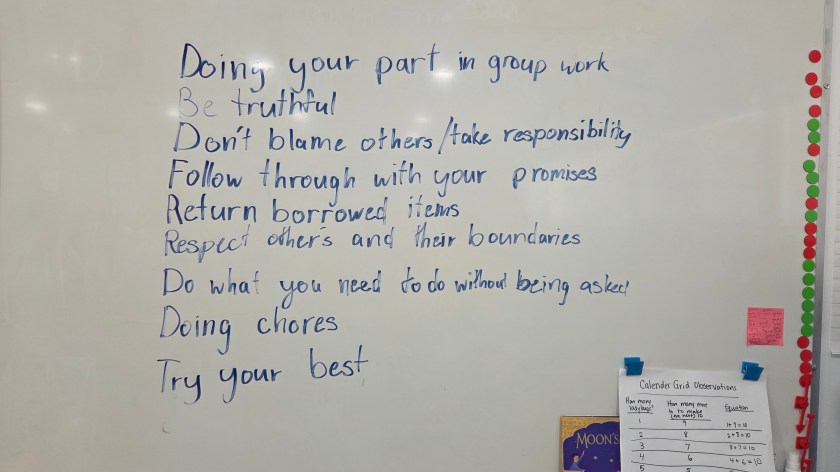 Doing your part in group work
Be truthful
Don't blame others/take responsibility
Follow through with your promises
Return borrowed items
Respect other's and their boundaries
Do what you need to do without being asked
Doing chores
Try your best
Calender Grid Observations
How many ladybugs? How many more to make Equation
1 9 1+9=10
2 8 2+8=10
3 7 3+7=10
4 6 4+6=10
5 5
MOON'S